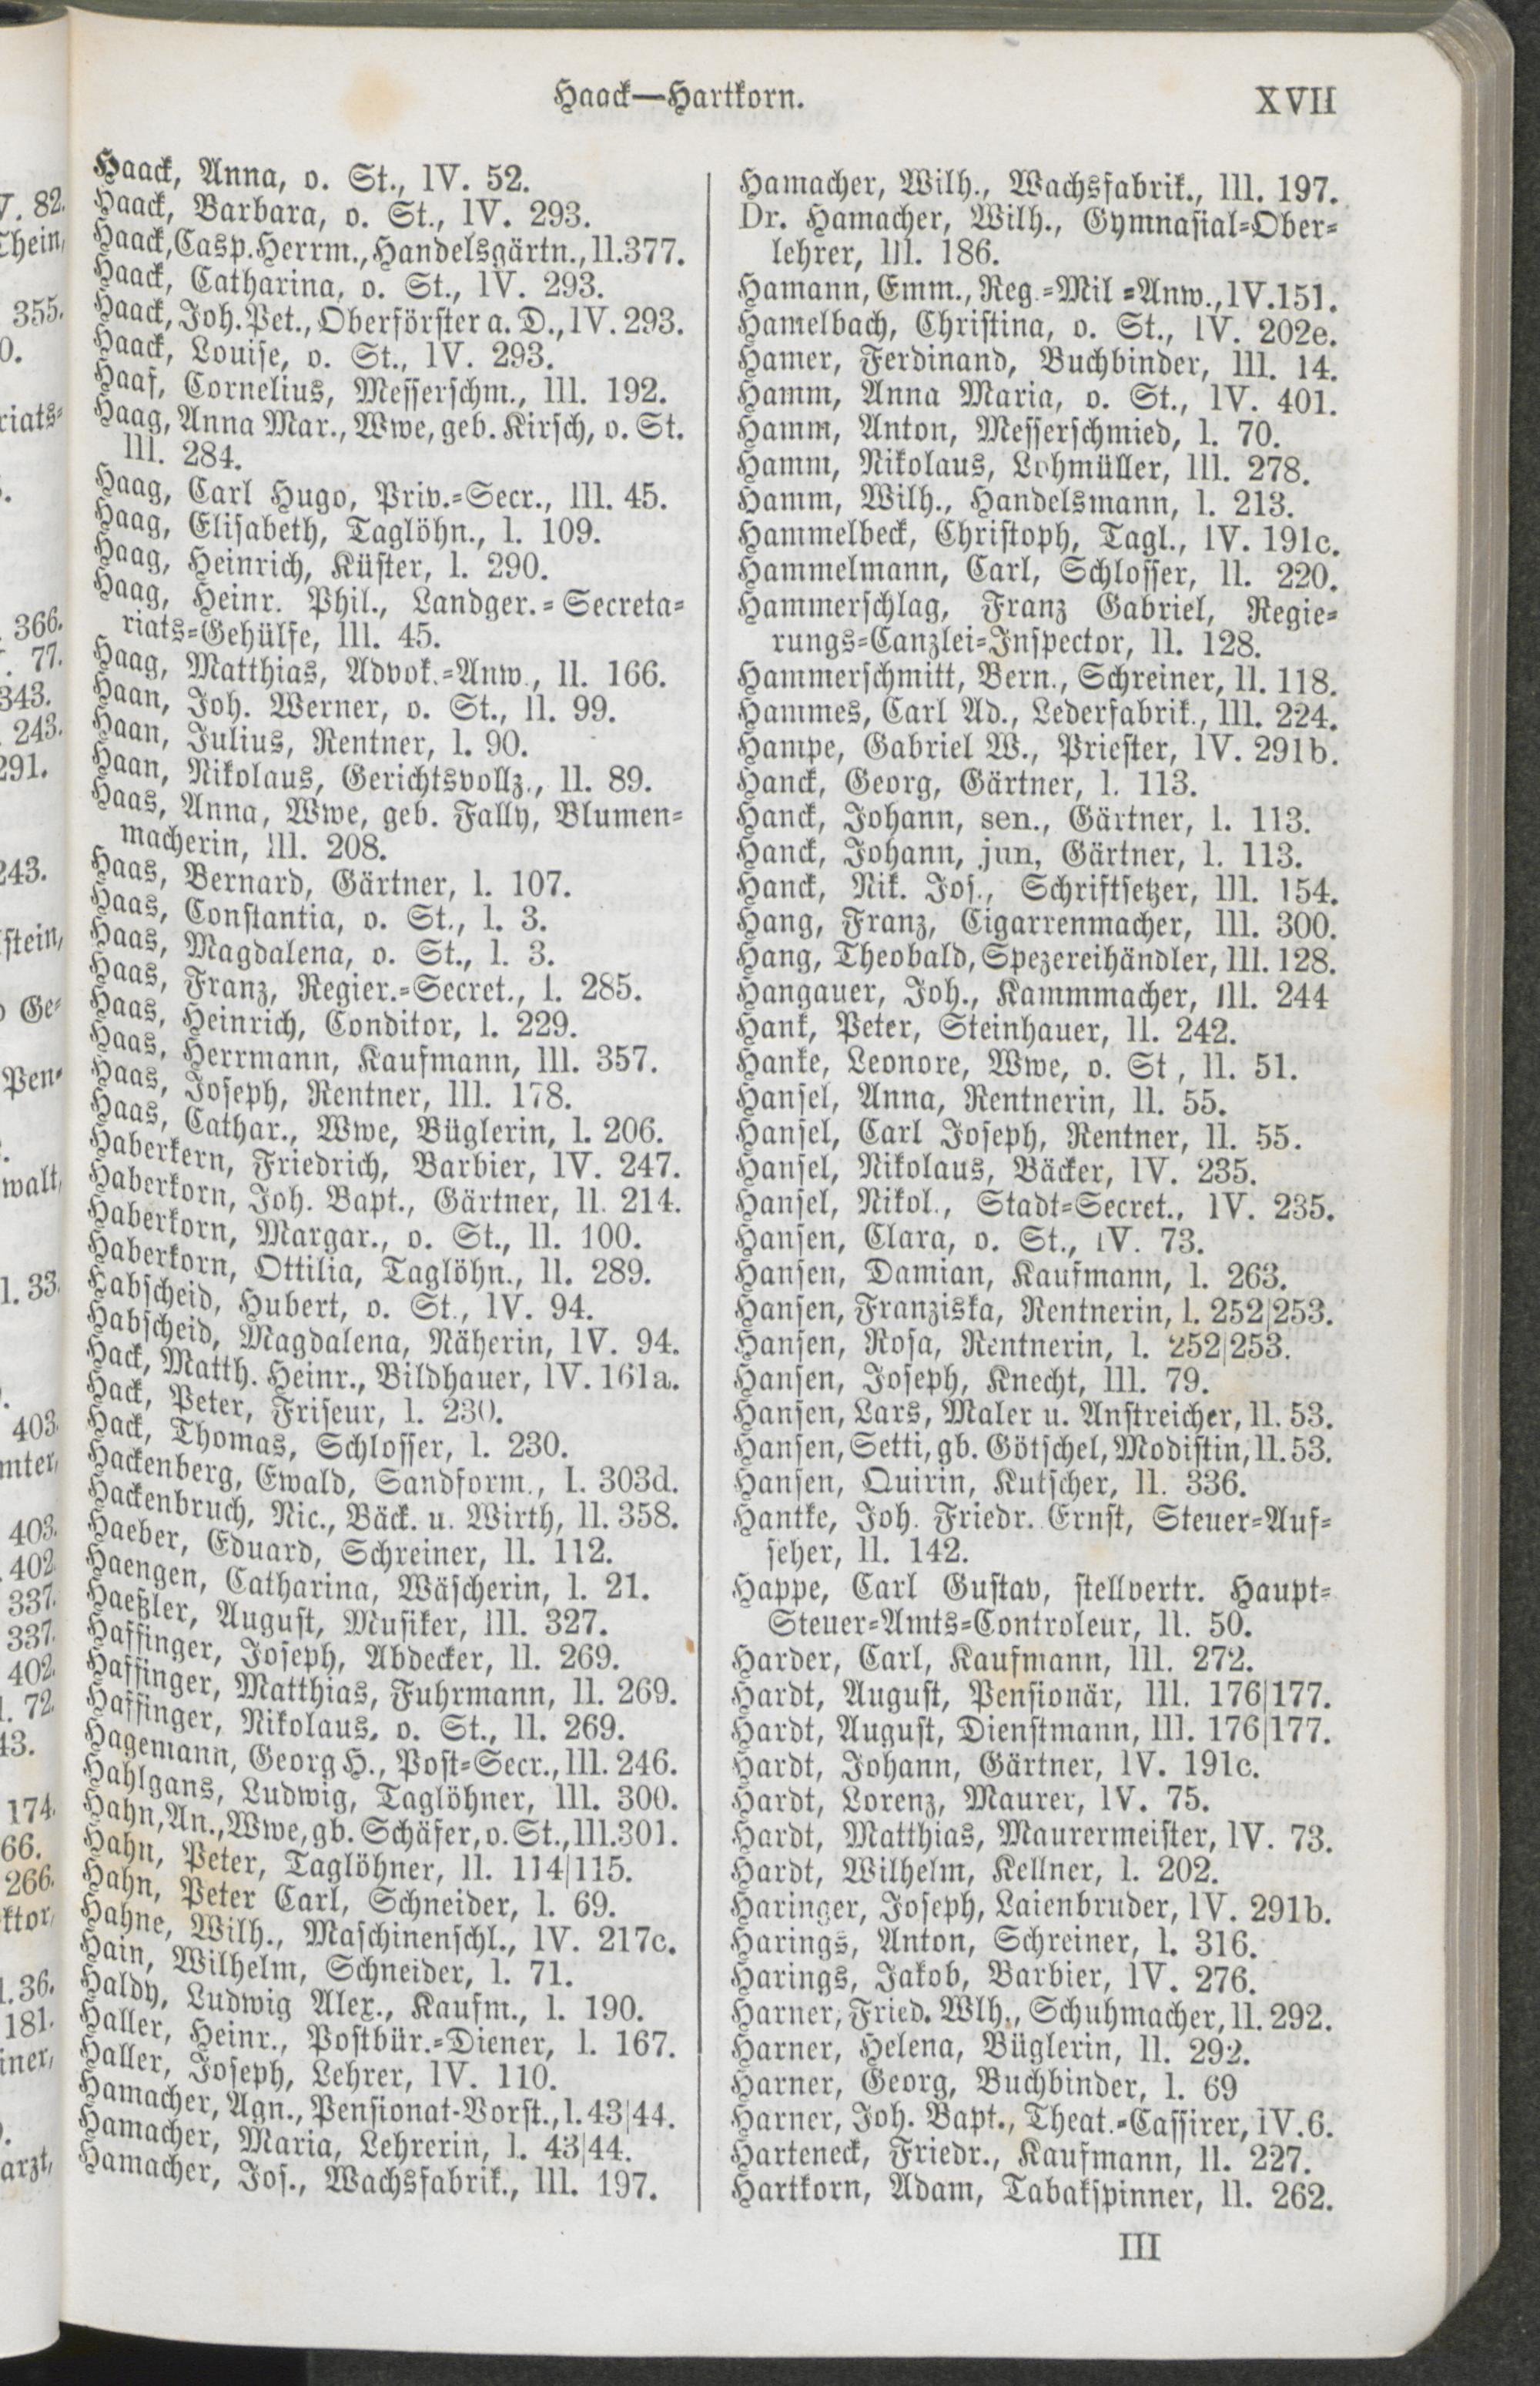 Haack—Hartkorn.
XVII
Haack, Anna, o. St., IV. 52.
Haack, Barbara, o. St., IV. 293.
Haack, Casp. Herrm., Handelsgärtn., II. 377.
Haack, Catharina, o. St., IV. 293.
Haack, Joh. Pet., Oberförster a. D., IV. 293.
Haack, Louise, o. St., IV. 293.
Haaf, Cornelius, Messerschm., III. 192.
Haag, Anna Mar., Wwe, geb. Kirsch, o. St.
III. 284.
Haag, Carl Hugo, Priv.=Secr., III. 45.
Haag, Elisabeth, Taglöhn., I. 109.
Haag, Heinrich, Küster, I. 290.
Haag, Heinr. Phil., Landger.=Secreta=
riats=Gehülfe, III. 45.
Haag, Matthias, Advok.=Anw., II. 166.
Haan, Joh. Werner, o. St., II. 99.
Haan, Julius, Rentner, I. 90.
Haan, Nikolaus, Gerichtsvollz., II. 89.
Haas, Anna, Wwe, geb. Fally, Blumen=
macherin, III. 208.
Haas, Bernard, Gärtner, I. 107.
Haas, Constantia, o. St., I. 3.
Haas, Magdalena, o. St., I. 3.
Haas, Franz, Regier.=Secret., I. 285.
Haas, Heinrich, Conditor, I. 229.
Haas, Herrmann, Kaufmann, III. 357.
Haas, Joseph, Rentner, III. 178.
Haas, Cathar., Wwe, Büglerin, I. 206.
Haberkern, Friedrich, Barbier, IV. 247.
Haberkorn, Joh. Bapt., Gärtner, II. 214.
Haberkorn, Margar., o. St., II. 100.
Haberkorn, Ottilia, Taglöhn., II. 289.
Habscheid, Hubert, o. St., IV. 94.
Habscheid, Magdalena, Näherin, IV. 94.
Hack, Matth. Heinr., Bildhauer, IV. 161a.
Hack, Peter, Friseur, I. 230.
Hack, Thomas, Schlosser, I. 230.
Hackenberg, Ewald, Sandform., I. 303d.
Hackenbruch, Nic., Bäck. u. Wirth, II. 358.
Haeber, Eduard, Schreiner, II. 112.
Haengen, Catharina, Wäscherin, I. 21.
Haeßler, August, Musiker, III. 327.
Haffinger, Joseph, Abdecker, II. 269.
Haffinger, Matthias, Fuhrmann, II. 269.
Haffinger, Nikolaus, o. St., II. 269.
Hagemann, Georg H., Post=Secr., III. 246.
Hahlgans, Ludwig, Taglöhner, III. 300.
Hahn, An., Wwe, gb. Schäfer, o. St., III. 301.
Hahn, Peter, Taglöhner, II. 114|115.
Hahn, Peter Carl, Schneider, I. 69.
Hahne, Wilh., Maschinenschl., IV. 217c.
Hain, Wilhelm, Schneider, I. 71.
Haldy, Ludwig Alex., Kaufm., I. 190.
Haller, Heinr., Postbür.=Diener, I. 167.
Haller, Joseph, Lehrer, IV. 110.
Hamacher, Agn., Pensionat-Vorst., I. 43|44.
Hamacher, Maria, Lehrerin, I. 43|44.
Hamacher, Jos., Wachsfabrik., III. 197.
Hamacher, Wilh., Wachsfabrik., III. 197.
Dr. Hamacher, Wilh., Gymnasial=Ober=
lehrer, III. 186.
Hamann, Emm., Reg.=Mil=Anw., IV. 151.
Hamelbach, Christina, o. St., IV. 202e.
Hamer, Ferdinand, Buchbinder, III. 14.
Hamm, Anna Maria, o. St., IV. 401.
Hamm, Anton, Messerschmied, I. 70.
Hamm, Nikolaus, Lohmüller, III. 278.
Hamm, Wilh., Handelsmann, I. 213.
Hammelbeck, Christoph, Tagl., IV. 191c.
Hammelmann, Carl, Schlosser, II. 220.
Hammerschlag, Franz Gabriel, Regie=
rungs=Canzlei=Inspector, II. 128.
Hammerschmitt, Bern., Schreiner, II. 118.
Hammes, Carl Ad., Lederfabrik., III. 224.
Hampe, Gabriel W., Priester, IV. 291b.
Hanck, Georg, Gärtner, I. 113.
Hanck, Johann, sen., Gärtner, I. 113.
Hanck, Johann, jun, Gärtner, I. 113.
Hanck, Nik. Jos., Schriftsetzer, III. 154.
Hang, Franz, Cigarrenmacher, III. 300.
Hang, Theobald, Spezereihändler, III. 128.
Hangauer, Joh., Kammmacher, III. 244
Hank, Peter, Steinhauer, II. 242.
Hanke, Leonore, Wwe, o. St, II. 51.
Hansel, Anna, Rentnerin, II. 55.
Hansel, Carl Joseph, Rentner, II. 55.
Hansel, Nikolaus, Bäcker, IV. 235.
Hansel, Nikol., Stadt=Secret., IV. 235.
Hansen, Clara, o. St., IV. 73.
Hansen, Damian, Kaufmann, I. 263.
Hansen, Franziska, Rentnerin, I. 252|253.
Hansen, Rosa, Rentnerin, I. 252|253.
Hansen, Joseph, Knecht, III. 79.
Hansen, Lars, Maler u. Anstreicher, II. 53.
Hansen, Setti, gb. Götschel, Modistin, II. 53.
Hansen, Quirin, Kutscher, II. 336.
Hantke, Joh. Friedr. Ernst, Steuer=Auf=
seher, II. 142.
Happe, Carl Gustav, stellvertr. Haupt=
Steuer=Amts=Controleur, II. 50.
Harder, Carl, Kaufmann, III. 272.
Hardt, August, Pensionär, III. 176|177.
Hardt, August, Dienstmann, III. 176|177.
Hardt, Johann, Gärtner, IV. 191c.
Hardt, Lorenz, Maurer, IV. 75.
Hardt, Matthias, Maurermeister, IV. 73.
Hardt, Wilhelm, Kellner, I. 202.
Haringer, Joseph, Laienbruder, IV. 291b.
Harings, Anton, Schreiner, I. 316.
Harings, Jakob, Barbier, IV. 276.
Harner, Fried. Wlh., Schuhmacher, II. 292.
Harner, Helena, Büglerin, II. 292.
Harner, Georg, Buchbinder, I. 69
Harner, Joh. Bapt., Theat.=Cassirer, IV. 6.
Harteneck, Friedr., Kaufmann, II. 227.
Hartkorn, Adam, Tabakspinner, II. 262.
III